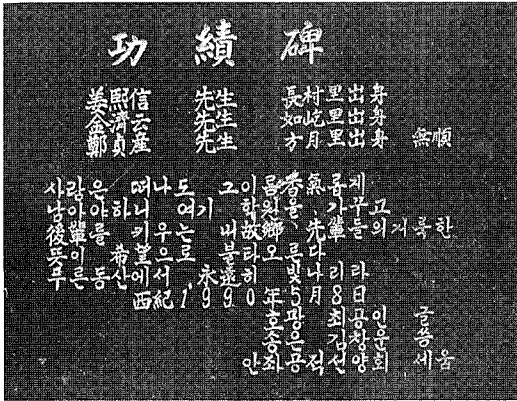 功績碑
姜熙信 先生 長村里出身
金濟云 先生 如屹里出身
鄭貞産 先生 方月里出身 無順
사람은 떠나도 그이름香氣롭게
남아야하니 여기 학원을 가꾸고
後輩를 키우는 내故鄕先輩들의거룩한
뜻이 希望으로 불타오른다
푸른동산에서 永遠히빛나리라
西紀1990年5月8日
호광 최공인 글
송은 김창운 씀
안좌공적선양회 세움